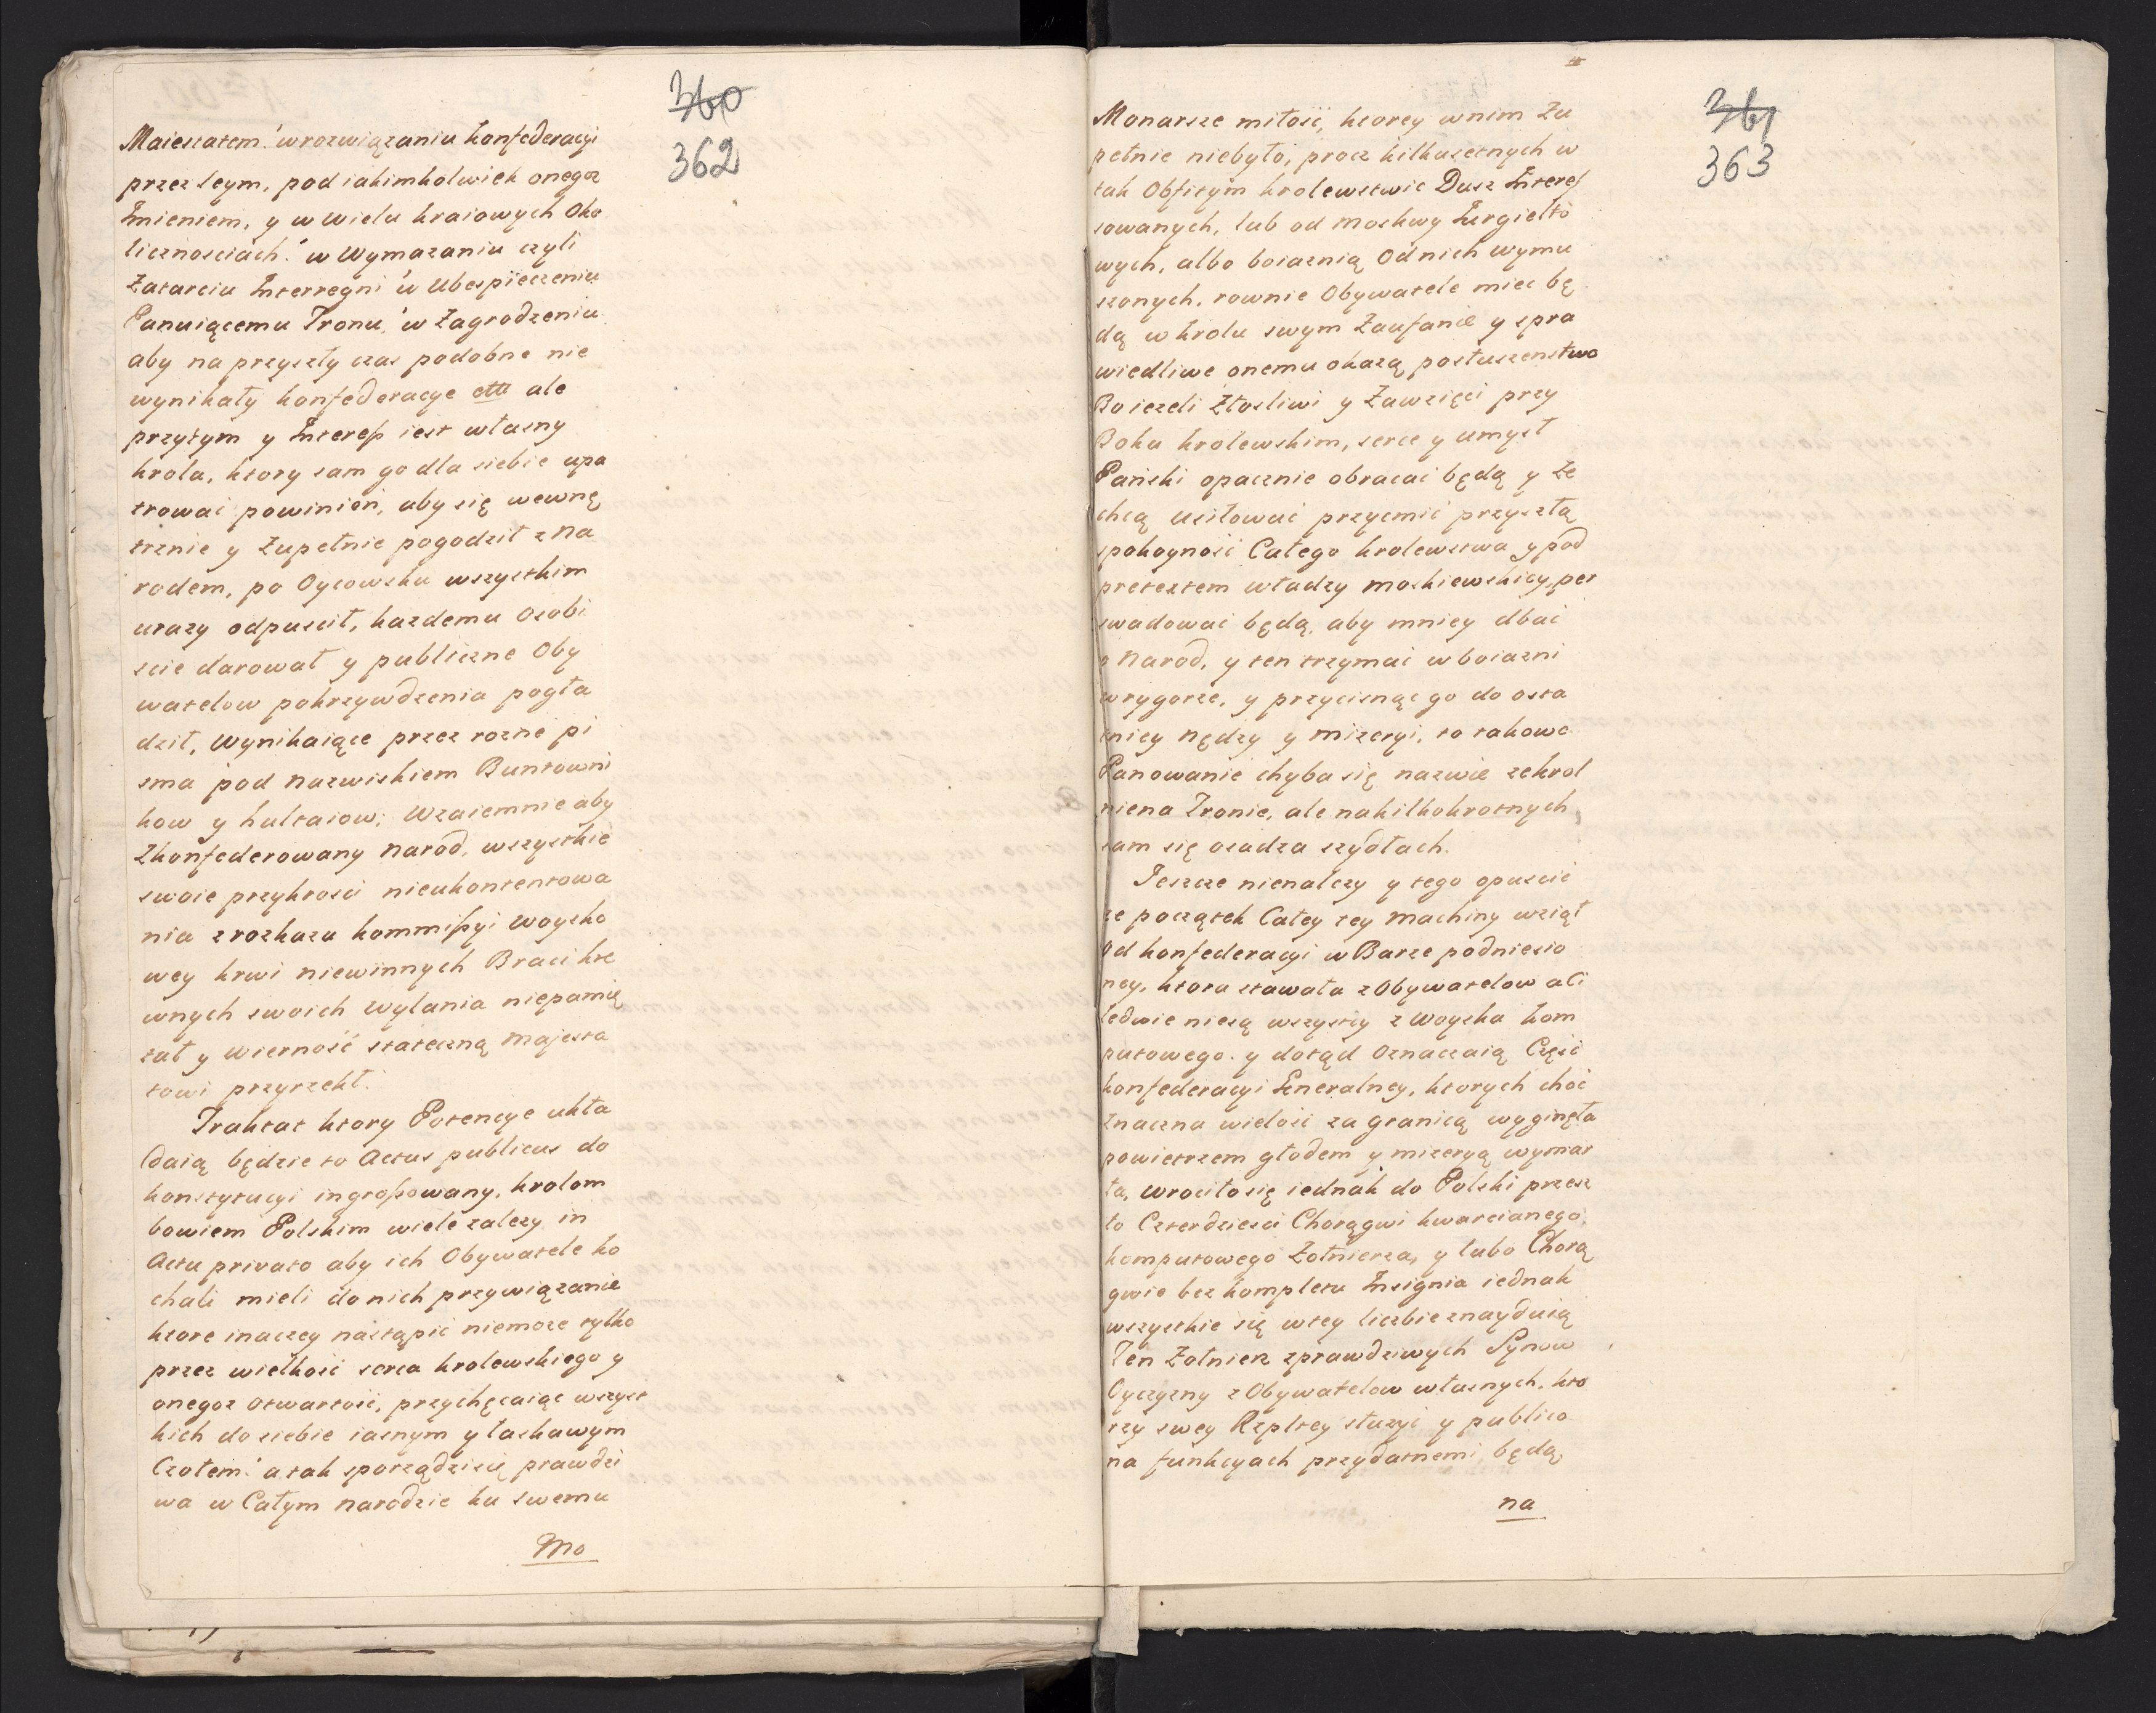 360
362
Maiestatem w rozwiązaniu konfederacyi
przez Seym, pod iakimkolwiek onegoz
Imieniem, y w wielu kraiowych Oko
licznosciach: w Wymazaniu czyli
Zatarciu Interregni w Ubespieczeniu
Panuiącemu Tronu, w Zagrodzeniu
aby na przyszły czas podobne nie
wynikały konfederacye etta ale
przytym y Interess iest własny
krola, ktory sam go dla siebie upa
trowac powinien, aby się wewnę
trznie y Zupełnie pogodził z Na
rodem, po Oycowsku wszystkim
urazy odpuscił, kazdemu Osobi
scie darował y publiczne Oby
watelow pokrzywdzenia pogła
dził, Wynikaiące przez rozne pi
sma pod nazwiskiem Buntowni
kow y hultaiow; Wzaiemnie aby
Zkonfederowany narod, wszystkie
swoie przykrosci nieukontentowa
nia z rozkazu kommissyi Woysko
wey krwi niewinnych Braci kre
wnych swoich wylania niepamię
tał y wiernosć stateczną Majesta
towi przyrzekł.
Traktat ktory Potencye ukła
daią będzie to Actus publicus do
konstytucyi ingrossowany, krolom
bowiem Polskim wiele zalezy in
Actu privato aby ich Obywatele ko
chali mieli do nich przywiązanie
ktore inaczey nastąpić niemoze tylko
przez wielkosć serca krolewskiego y
onegoz otwartosć, przychęcaiąc wszyst
kich do siebie iasnym y łaskawym
Czołem: a tak sporządzi się prawdzi
wa w Całym narodzie ku swemu
Mo
361
363
Monarsze miłosć, ktorey w nim Zu
pełnie niebyło, procz kilkusetnych w
tak Obfitym krolewstwie Dusz Interes
sowanych, lub od moskwy Jurgielto
wych, albo boiaznią Od nich wymu
szonych. rownie Obywatele miec bę
dą w krolu swym Zaufanie y spra
wiedliwe onemu okazą posłuszenstwo
Bo iezeli Złosliwi y Zawzięci przy
Boku krolewskim, serce y umysł
Pański opacznie obracac będą y ze
chcą usiłowac przycmić przyszłą
spokoynosć Całego krolewstwa y pod
pretextem władzy moskiewskiey, per
swadowac będą, aby mniey dbać
o Narod, y ten trzymać w boiazni
w rygorze, y przycisnąc go do osta
tniey Nędzy y mizeryi, to takowe
Panowanie chyba się nazwie ze krol
niena Tronie, ale na kilkokrotnych
sam się osadza szydłach.
Jeszcze nienalezy y tego opuscic
ze początek Całey tey machiny wziął
od konfederacyi w Barze podniesio
ney, ktora stawała z Obywatelow ali
ledwie niesą wszyscy z Woyska kom
putowego. y dotąd Oznaczaią Częsc
konfederacyi Generalney, ktorych choć
Znaczna wielosć za granicą wyginęła
powietrzem głodem y mizeryą wymar
ła, wrociło się iednak do Polski przesz
ło Czterdziesci Chorągwi kwarcianego,
komputowego Zołnierza, y lubo Chorą
gwie bez kompletu Insignia iednak
wszystkie się w tey liczbie znayduią
Ten Zołnierz zprawdziwych Synow
Oyczyzny z Obywatelow własnych, kto
rzy swey Rzpltey słuzyć y publico
na funkcyach przydatnemi będą
na